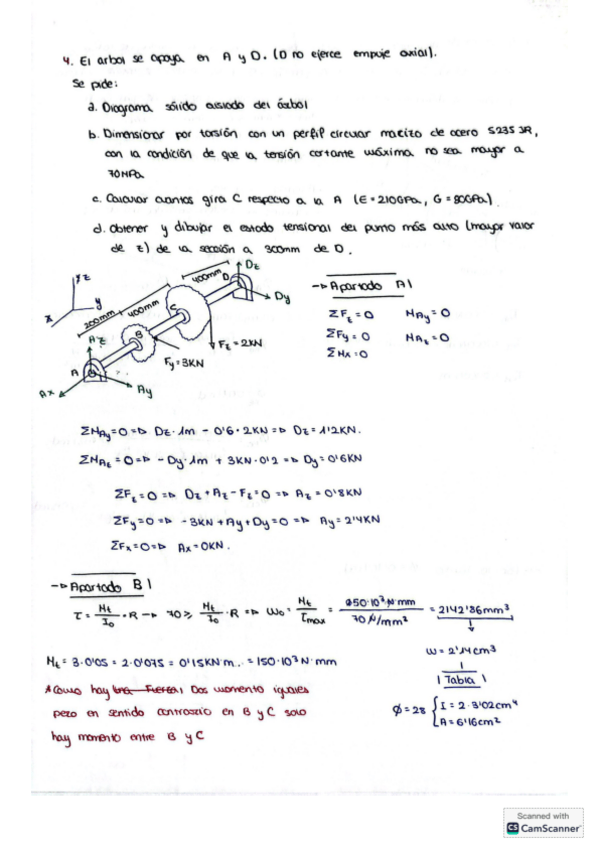 4. El arbol se apoya en A y D. (D no ejerce empuje axial).
Se pide:
a. Diagrama sólido aislado del árbol
b. Dimensionar por torsión con un perfil circular macizo de acero S235 JR,
con la condición de que la tensión cortante máxima no sea mayor a
70MPa
c. Calcular cuantos gira C respecto a la A (E=210GPa, G=80GPa)
d. Obtener y dibujar el estado tensional del punto más alto (mayor valor
de z) de la sección a 300mm de D.
z
x
y
200mm
400mm
400mm
A
B
C
D
Dz
Dy
Fz=2KN
Fy=3KN
Az
Ax
Ay
→Apartado A|
ΣFz=0 MAy=0
ΣFy=0 MAz=0
ΣMx=0
ΣMAy=0=> Dz·1m - 0'6·2KN=> Dz=1'2KN.
ΣMAz=0=> -Dy·1m + 3KN·0'2=> Dy=0'6KN
ΣFz=0=> Dz+Az-Fz=0=> Az=0'8KN
ΣFy=0=> -3KN+Ay+Dy=0=> Ay=2'4KN
ΣFx=0=> Ax=0KN.
→Apartado B|
τ = Mt/I0 · R → 70 ≥ Mt/I0 · R => W0 = Mt/τmax = 150·10³ N·mm / 70 N/mm² = 2142'86mm³
W=2'14cm³
Mt = 3·0'05 = 2·0'075 = 0'15KN·m. = 150·10³N·mm
| Tabla |
*Como hay una Fuerza| Dos momento iguales
pero en sentido contrario en B y C solo
hay momento entre B y C
Ø=28 { I=2·3'02cm⁴
A=6'16cm²
Scanned with
CS CamScanner